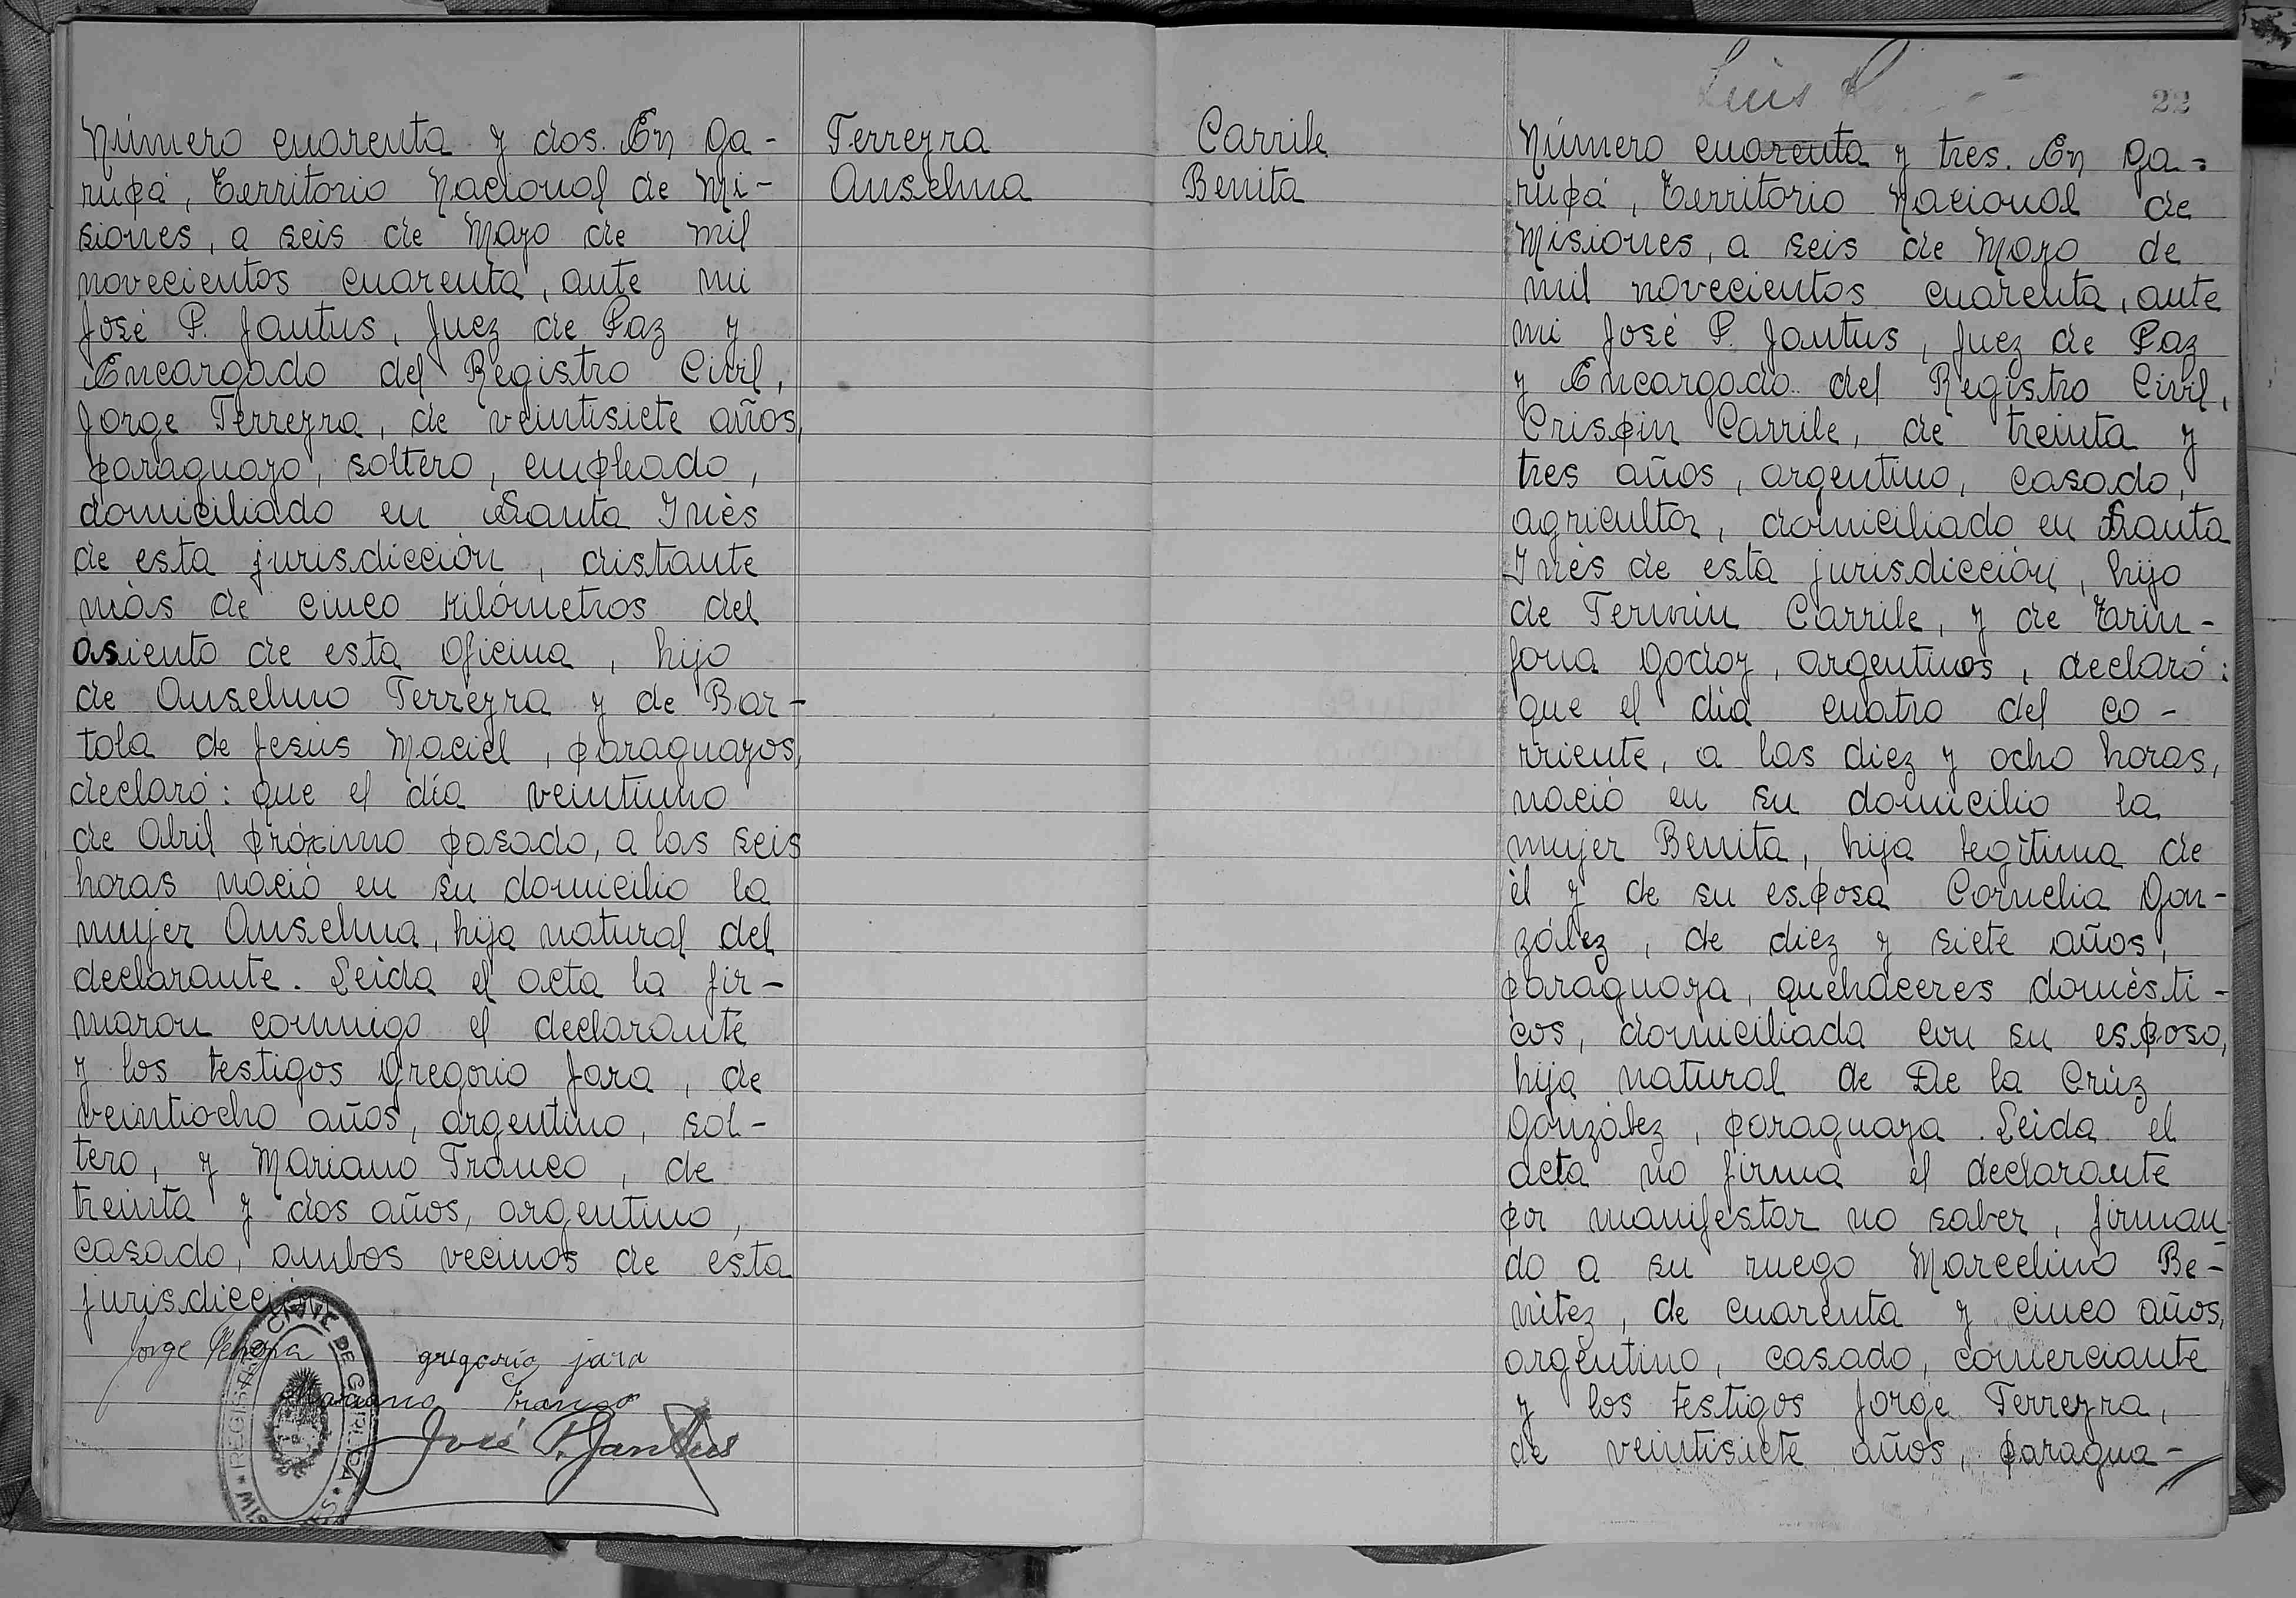 Número cuarenta y dos. En Ga-
rupá, Territorio Nacional de Mi-
siones, a seis de Mayo de mil
novecientos cuarenta, ante mi
José P. Jantus, Juez de Paz y
Encargado del Registro Civil,
Jorge Ferreyra, de veintisiete años,
paraguayo, soltero, empleado,
domiciliado en Santa Inés
de esta jurisdicción, distante
más de cinco kilómetros del
asiento de esta Oficina, hijo
de Anselmo Ferreyra y de Bar-
tola de Jesús Maciel, paraguayos,
declaró: que el día veintiuno
de Abril próximo pasado, a las seis
horas nació en su domicilio la
mujer Anselma, hija natural del
declarante. Leida el acta la fir-
maron conmigo el declarante
y los testigos Gregorio Jara, de
veintiocho años, argentino, sol-
tero, y Mariano Franco, de
treinta y dos años, argentino,
casado, ambos vecinos de esta
jurisdicción
Jorge Ferreyra gregorio jara
Mariano Franco
José P. Jantus
Ferreyra
Anselma
Carrile
Benita
Luis
22
Número cuarenta y tres. En Ga-
rupá, Territorio Nacional de
Misiones, a seis de Mayo de
mil novecientos cuarenta, ante
mi José P. Jantus, Juez de Paz
y Encargado del Registro Civil,
Crispin Carrile, de treinta y
tres años, argentino, casado,
agricultor, domiciliado en Santa
Inés de esta jurisdicción, hijo
de Fermin Carrile, y de
Godoy, argentinos, declaró:
que el día cuatro del co-
rriente, a las diez y ocho horas,
nació en su domicilio la
mujer Benita, hija legítima de
él y de su esposa Cornelia Gon-
zález, de diez y siete años,
paraguaya, quehaceres domésti-
cos, domiciliada con su esposo,
hija natural de De la Crúz
González, paraguaya. Leida el
acta no firma el declarante
por manifestar no saber, firman-
do a su ruego Marcelino Be-
nitez, de cuarenta y cinco años,
argentino, casado, comerciante
y los testigos Jorge Ferreyra,
de veintisiete años, paragua-